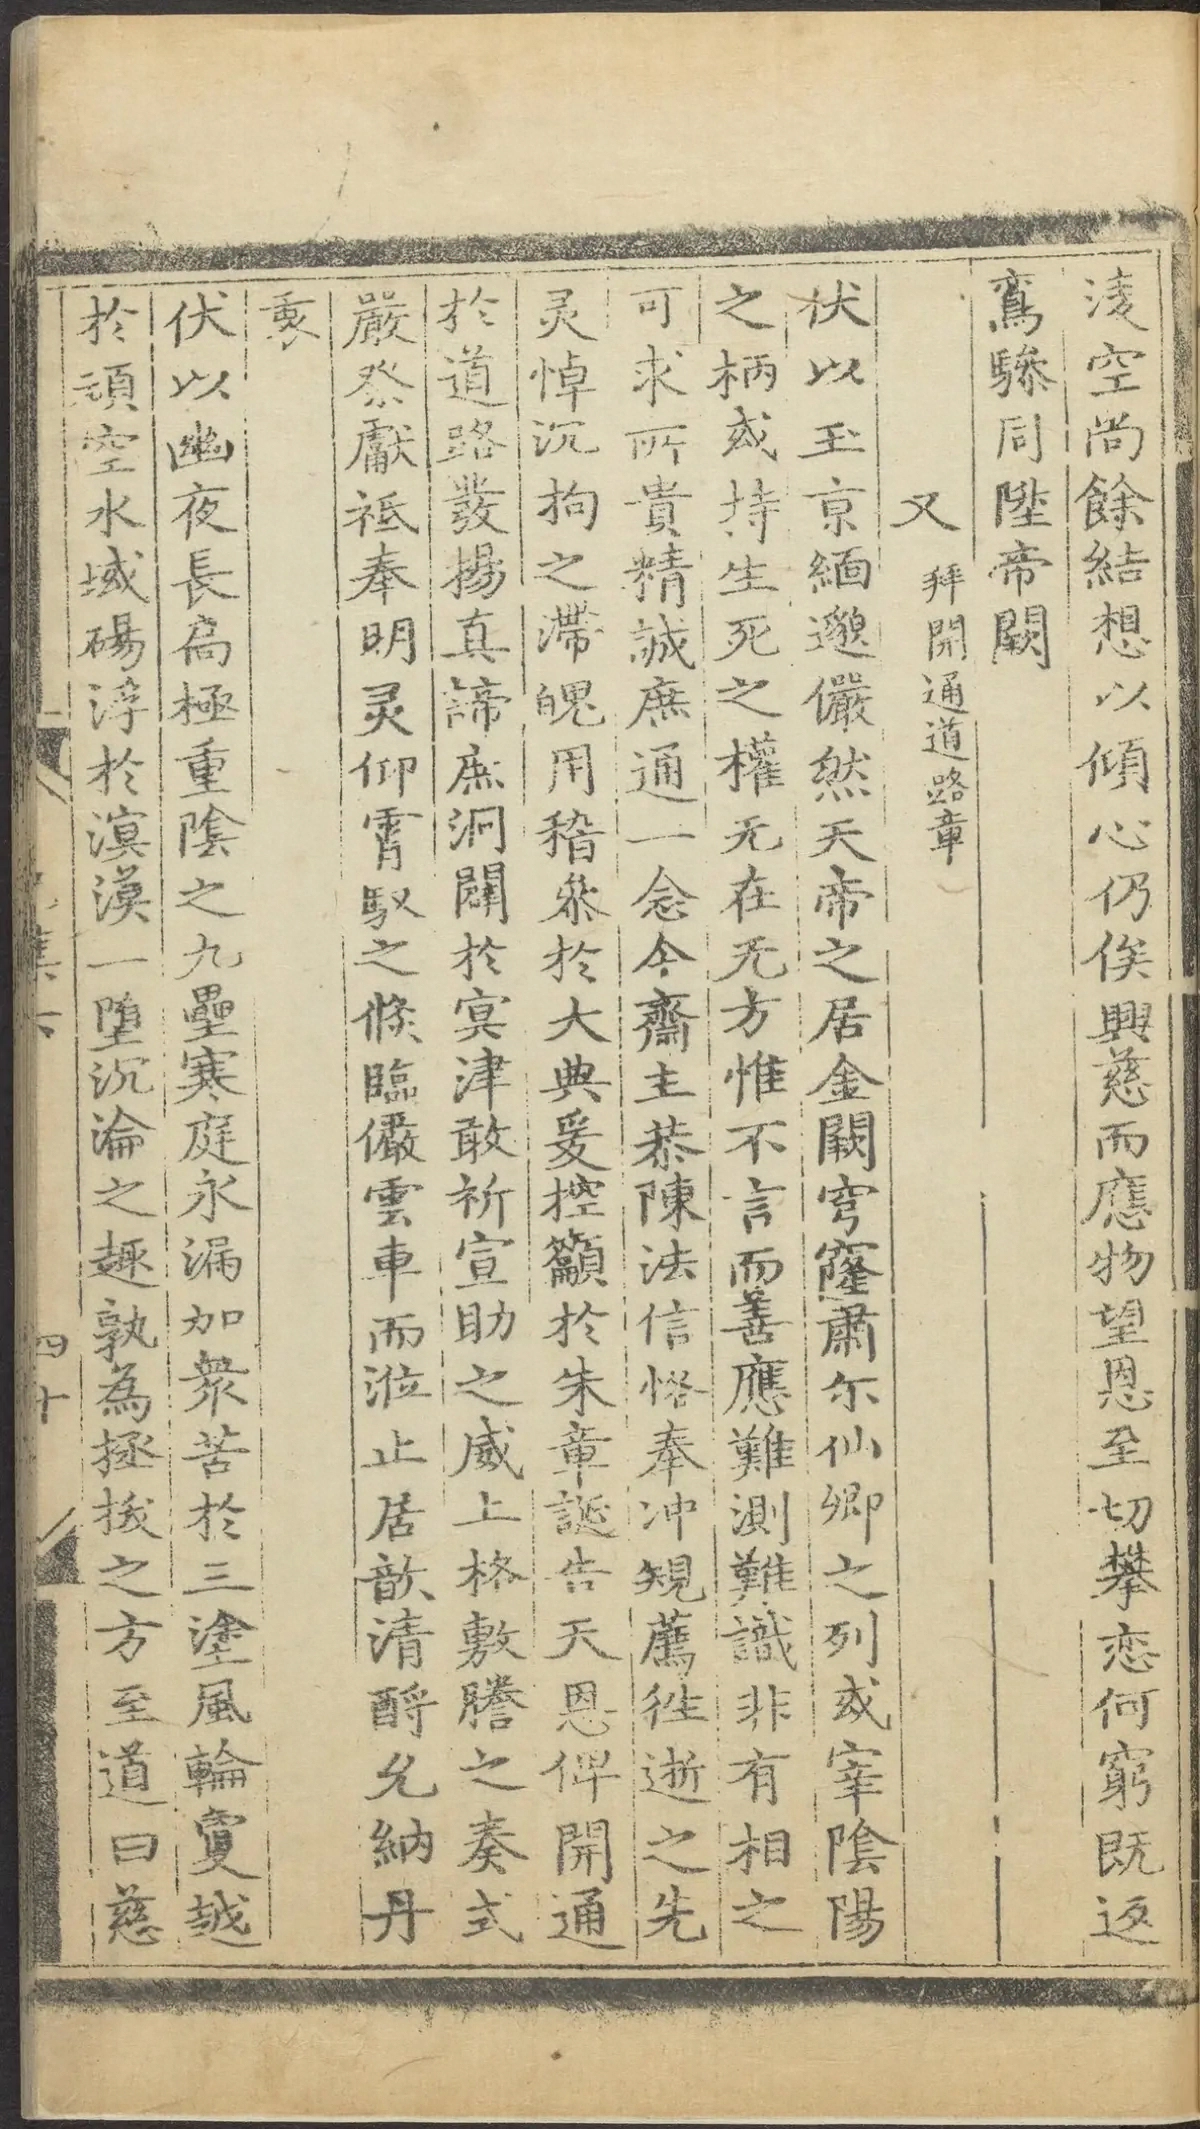 淩空尚餘結想以傾心仍俟興慈而應物望恩至切攀恋何窮既返
鸞驂同陞帝闕
又 拜開通道路章
伏以玉京緬邈儼然天帝之居金闕穹窿肅尒仙卿之列或宰陰陽
之柄或持生死之權无在无方惟不言而善應難測難識非有相之
可求所貴精誠庶通一念今齋主恭陳法信恪奉冲規薦徃逝之先
灵悼沉拘之滯魄用稽叅於大典爰控籲於朱章誕告天恩俾開通
於道路發揚真諦庶洞闢於㝠津敢祈宣助之威上格敷謄之奏式
嚴祭獻祗奉明灵仰霄馭之倏臨儼雲車而涖止居歆清酹允納丹
衷
伏以幽夜長扃極重陰之九壘寒庭永漏加衆苦於三塗風輪敻越
於頑空水域碭浮於溟漠一堕沉淪之趣孰為拯拔之方至道曰慈
四十